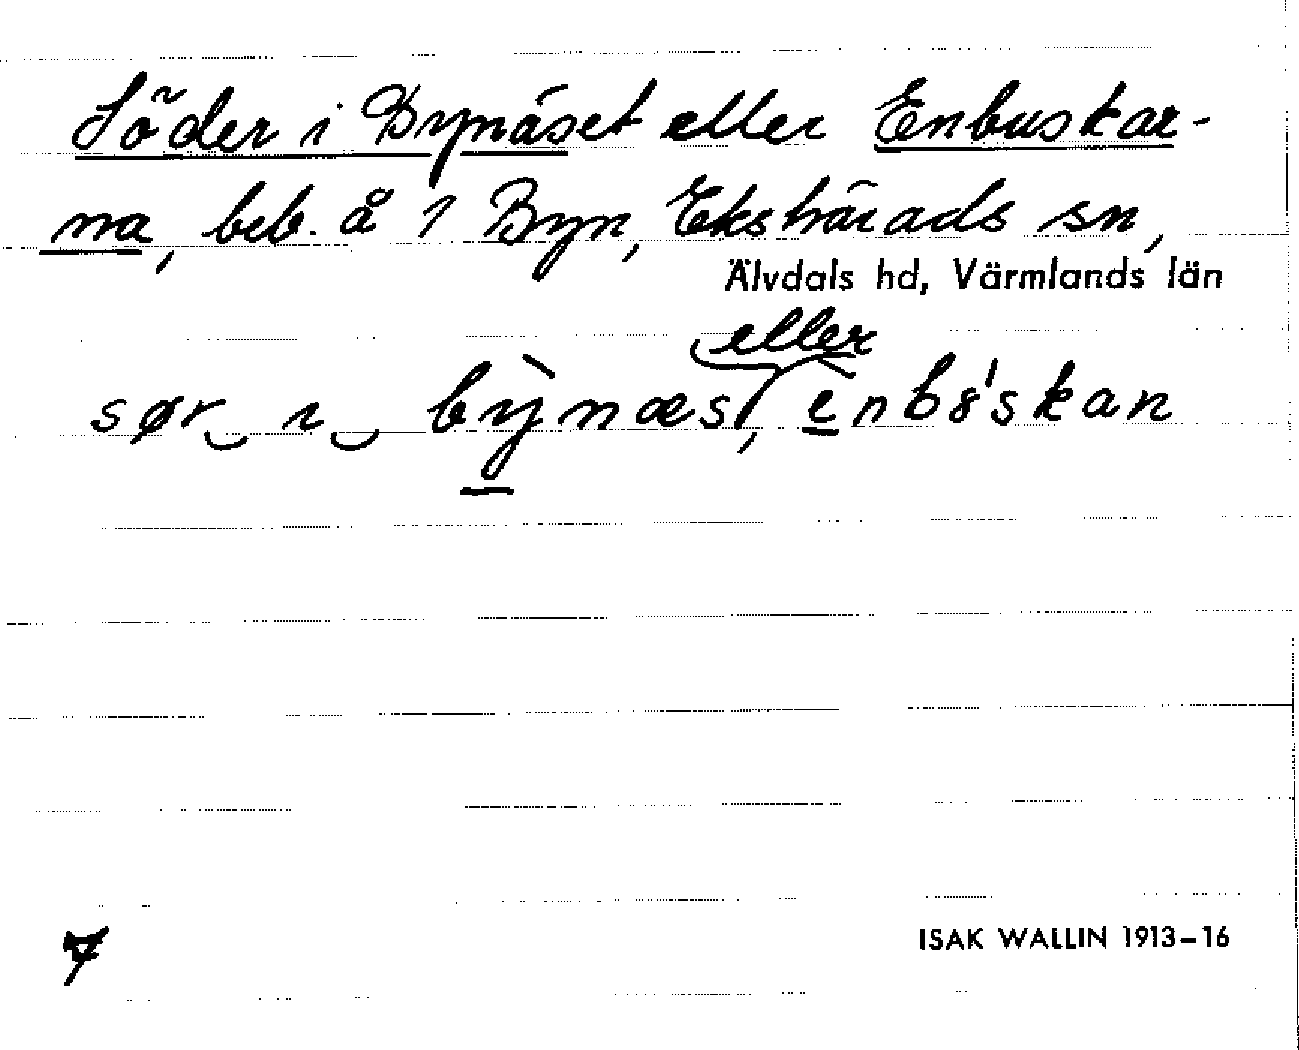 Söder i Bynäset eller Enbuskar-
na, beb. å 1 Byn, Ekshärads sn,
Älvdals hd, Värmlands län
eller
sør‿ı‿bỳnæs, ènbꞷ'skan
7
ISAK WALLIN 1913–16